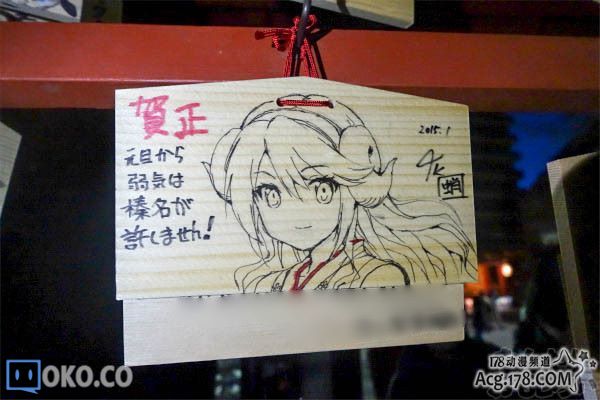 賀正
元旦から
弱気は
榛名が
許しません!
2015.1
蛸
OKO.CO
178动漫频道
Acg.178.COM